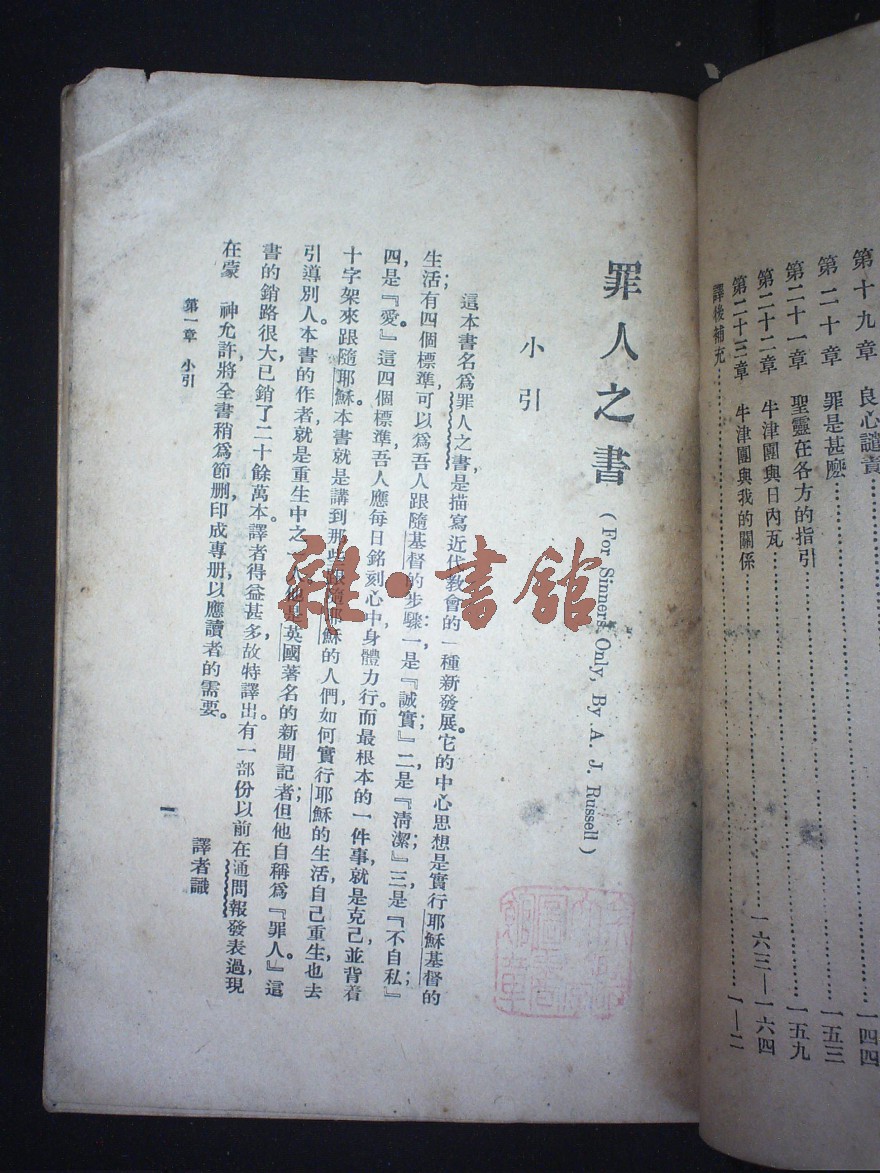 第十九章 良心譴責 一四四
第二十章 罪是甚麼 一五三
第二十一章 聖靈在各方的指引 一五九
第二十二章 牛津團與日內瓦 一六三—一六四
第二十三章 牛津團與我的關係
譯後補充 一—二
罪人之書 (For Sinners Only, By A. J. Russell)
小引
這本書名爲罪人之書，是描寫近代教會的一種新發展。它的中心思想是實行耶穌基督的
生活；有四個標準，可以爲吾人跟隨基督的步驟：一是『誠實』；二是『清潔』；三是『不自私』；
四是『愛』。這四個標準，吾人應每日銘刻心中，身體力行。而最根本的一件事，就是克己並背着
十字架來跟隨耶穌。本書就是講到那些跟隨耶穌的人們，如何實行耶穌的生活，自己重生，也去
引導別人。本書的作者就是重生中之一人，他是英國著名的新聞記者；但他自稱爲『罪人』。這
書的銷路很大，已銷了二十餘萬本。譯者得益甚多，故特譯出。有一部份以前在通問報發表過，現
在蒙 神允許，將全書稍爲節刪，印成專册，以應讀者的需要。
譯者識
第一章 小引
一
雜·書館